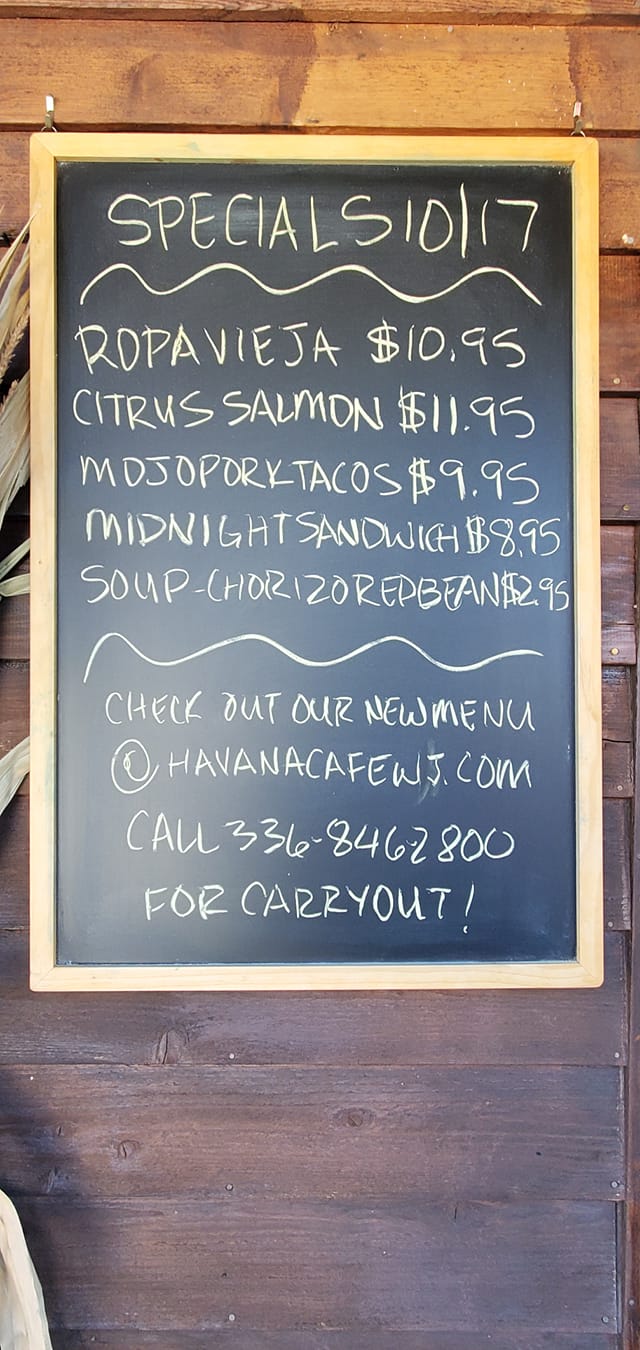 SPECIALS 10/17
ROPA VIEJA $10.95
CITRUS SALMON $11.95
MOJO PORK TACOS $9.95
MIDNIGHT SANDWICH $8.95
SOUP-CHORIZO RED BEAN $2.95
CHECK OUT OUR NEW MENU
@ HAVANACAFEWJ.COM
CALL 336-846-2800
FOR CARRYOUT!